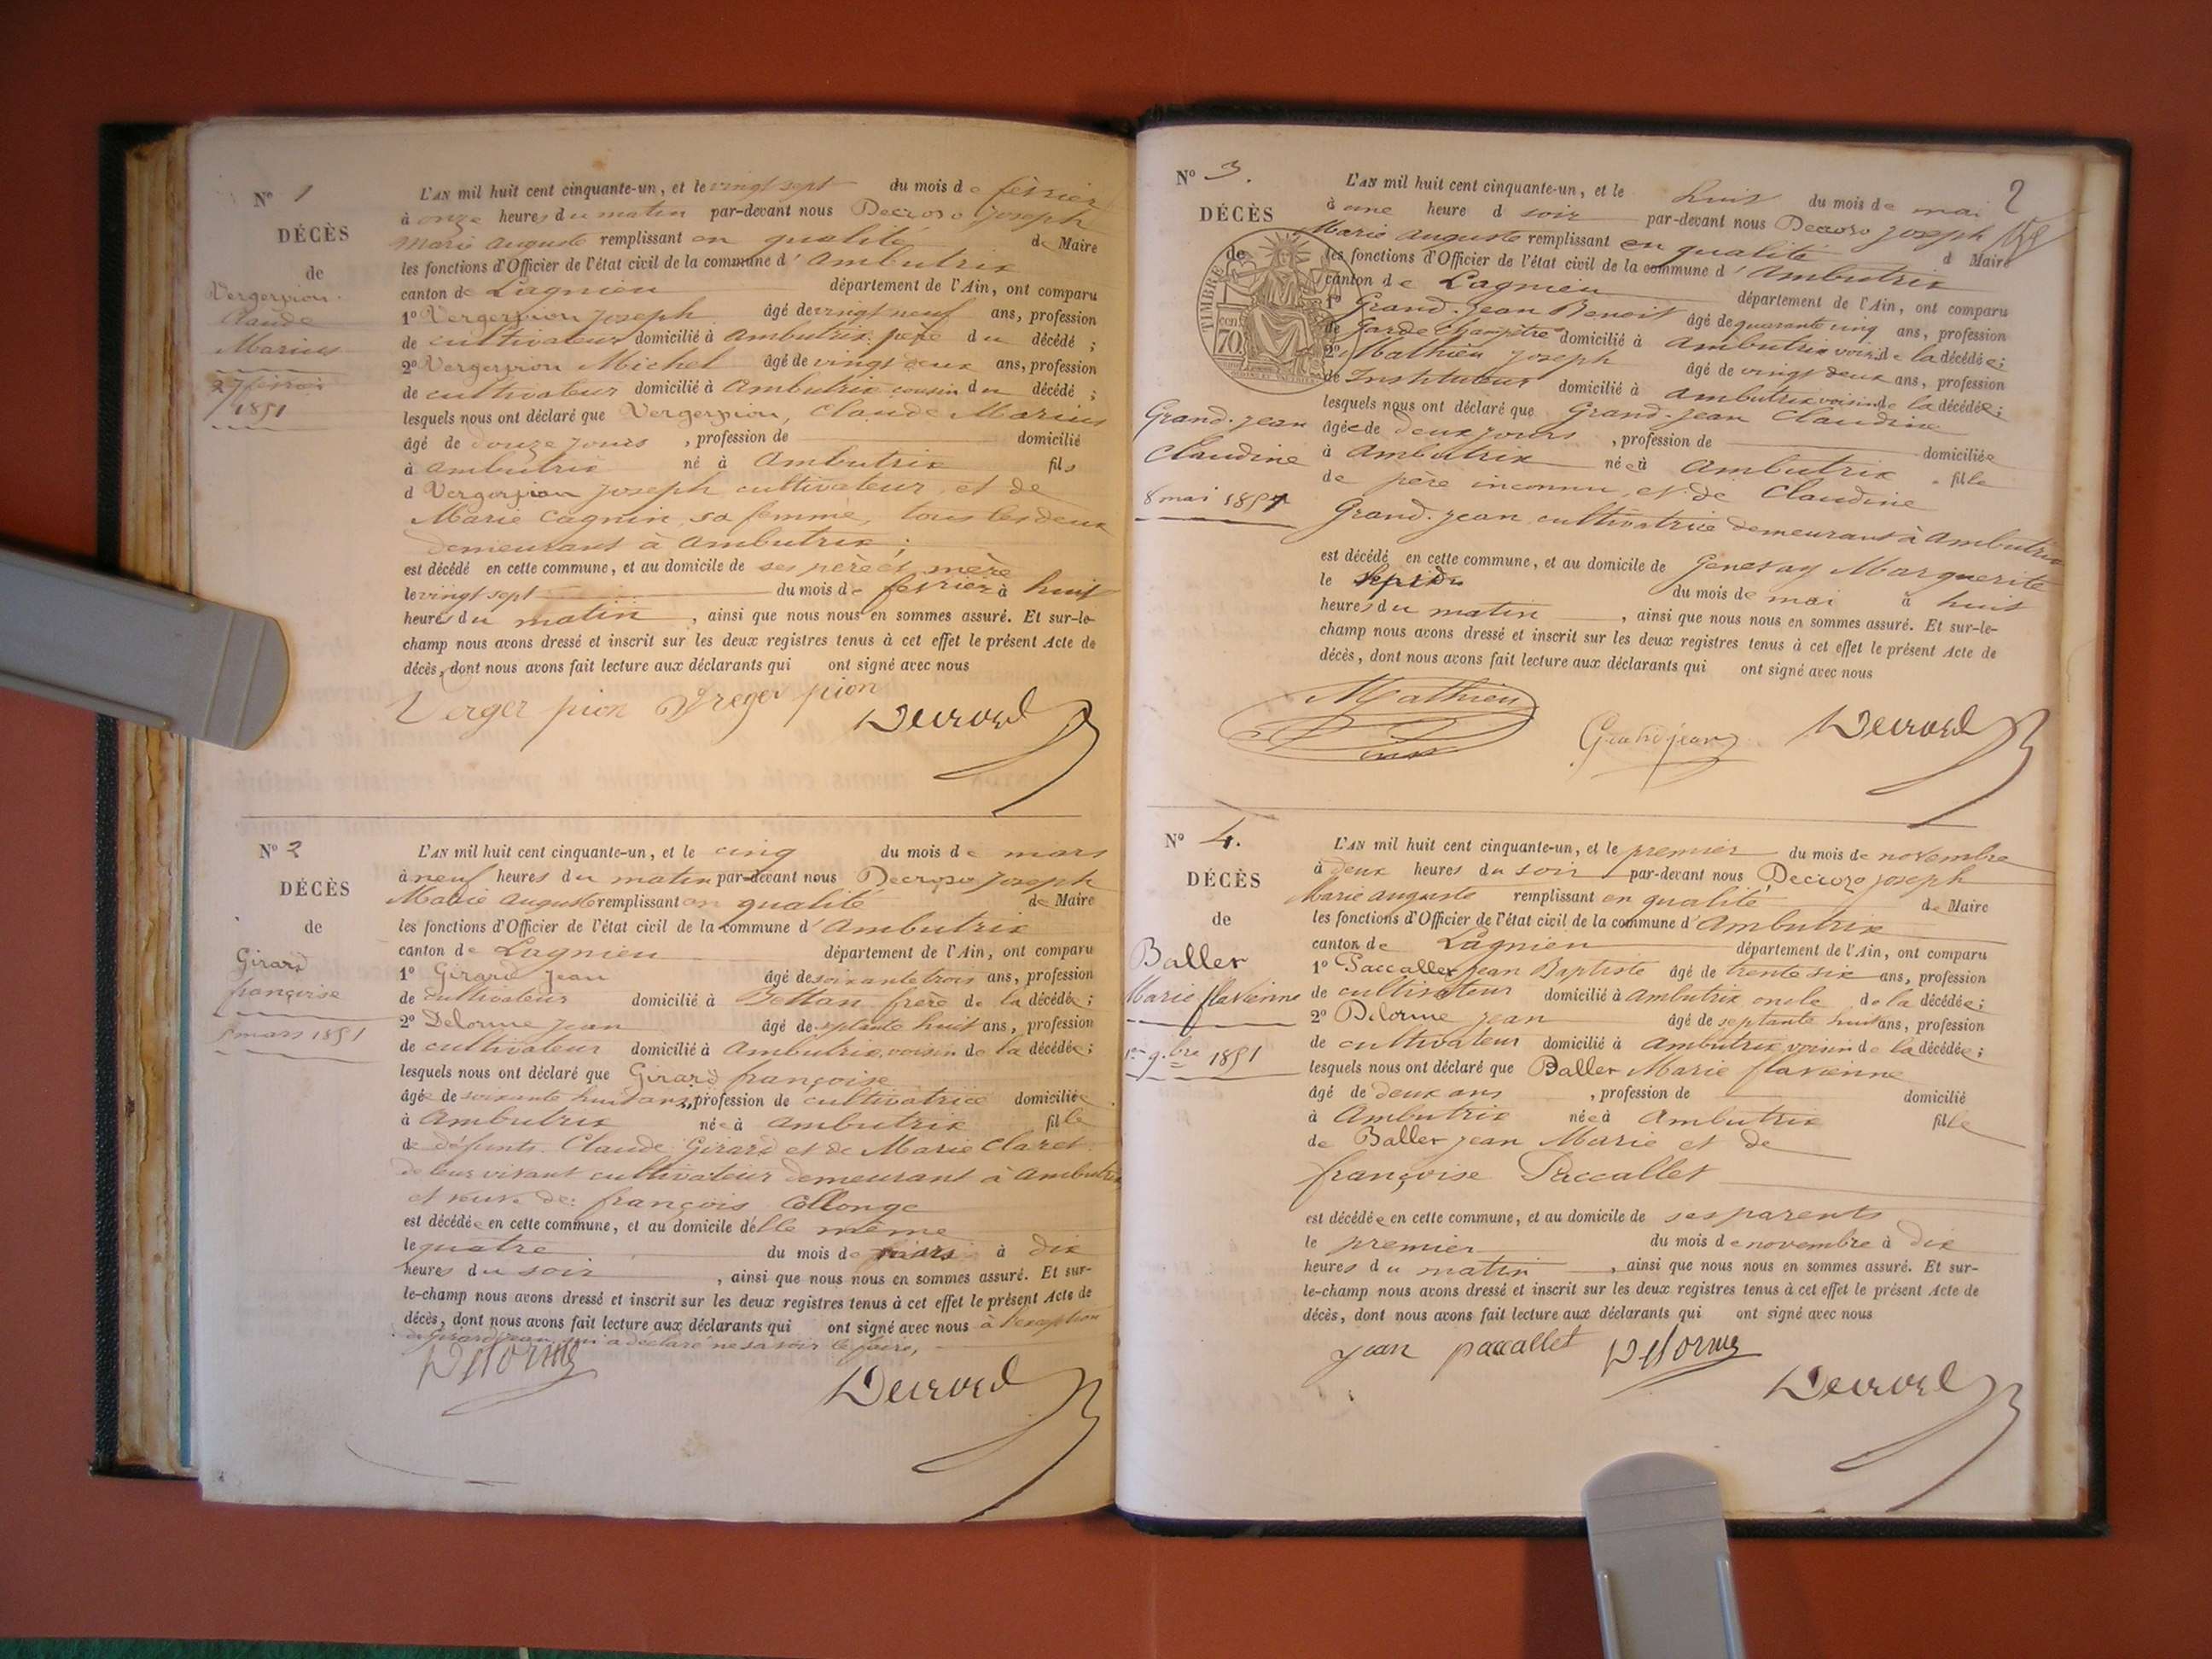 N° 1
DÉCÈS
de
Vergerpion
Claude
Marius
27 février
1851
L'AN mil huit cent cinquante-un, et le vingt sept du mois de février
à onze heures du matin par-devant nous Decroso Joseph
Marie Auguste remplissant en qualité de Maire
les fonctions d'Officier de l'état civil de la commune d'Ambutrix
canton de Lagnieu département de l'Ain, ont comparu
1° Vergerpion Joseph âgé de vingt neuf ans, profession
de cultivateur domicilié à Ambutrix père du décédé ;
2° Vergerpion Michel âgé de vingt deux ans, profession
de cultivateur domicilié à Ambutrix cousin du décédé ;
lesquels nous ont déclaré que Vergerpion, Claude Marius
âgé de douze jours , profession de domicilié
à Ambutrix né à Ambutrix fils
d Vergerpion Joseph cultivateur et de
Marie Cagnin, sa femme, tous les deux
demeurant à Ambutrix ;
est décédé en cette commune, et au domicile de ses père et mère
le vingt sept du mois de février à huit
heures du matin , ainsi que nous nous en sommes assuré. Et sur-le-
champ nous avons dressé et inscrit sur les deux registres tenus à cet effet le présent Acte de
décès, dont nous avons fait lecture aux déclarants qui ont signé avec nous
Verger pion Vreger pion
Decroso
N° 2
DÉCÈS
de
Girard
françoise
5 mars 1851
L'AN mil huit cent cinquante-un, et le cinq du mois de mars
à neuf heures du matin par-devant nous Decroso Joseph
Marie Auguste remplissant en qualité de Maire
les fonctions d'Officier de l'état civil de la commune d'Ambutrix
canton de Lagnieu département de l'Ain, ont comparu
1° Girard Jean âgé de soixante trois ans, profession
de cultivateur domicilié à Bettan frère de la décédée ;
2° Delorme Jean âgé de septante huit ans, profession
de cultivateur domicilié à Ambutrix, voisin de la décédée ;
lesquels nous ont déclaré que Girard françoise
âgée de soixante huit ans, profession de cultivatrice domiciliée
à Ambutrix née à Ambutrix fille
de défunts Claude Girard et de Marie Claret
de leur vivant cultivateur demeurant à Ambutrix
et veuve de françois Collonge
est décédée en cette commune, et au domicile d'elle même
le quatre du mois de mars à dix
heures du soir , ainsi que nous nous en sommes assuré. Et sur-
le-champ nous avons dressé et inscrit sur les deux registres tenus à cet effet le présent Acte de
décès, dont nous avons fait lecture aux déclarants qui ont signé avec nous à l'exception
de Girard Jean qui a déclaré ne savoir le faire,
Delorme
Decroso
2
N° 3.
DÉCÈS
de
TIMBRE
70
Grand-Jean
Claudine
8 mai 1851
L'AN mil huit cent cinquante-un, et le huit du mois de mai
à une heure d soir par-devant nous Decroso Joseph
Marie Auguste remplissant en qualité d Maire
les fonctions d'Officier de l'état civil de la commune d'Ambutrix
canton de Lagnieu département de l'Ain, ont comparu
1° Grand-Jean Benoit âgé de quarante cinq ans, profession
de Garde Champêtre domicilié à Ambutrix voisin de la décédée ;
2° Mathieu Joseph âgé de vingt deux ans, profession
de Instituteur domicilié à Ambutrix voisin de la décédée ;
lesquels nous ont déclaré que Grand-Jean Claudine
âgée de deux jours , profession de domiciliée
à Ambutrix née à Ambutrix fille
de père inconnu et de Claudine
Grand-Jean cultivatrice demeurant à Ambutrix
est décédé en cette commune, et au domicile de Genesay Marguerite
le sept du mois de mai à huit
heures du matin , ainsi que nous nous en sommes assuré. Et sur-le-
champ nous avons dressé et inscrit sur les deux registres tenus à cet effet le présent Acte de
décès, dont nous avons fait lecture aux déclarants qui ont signé avec nous
Mathieu
Grandjean
Decroso
N° 4.
DÉCÈS
de
Baller
Marie flavienne
1er 9.bre 1851
L'AN mil huit cent cinquante-un, et le premier du mois de novembre
à deux heures du soir par-devant nous Decroso Joseph
Marie Auguste remplissant en qualité de Maire
les fonctions d'Officier de l'état civil de la commune d'Ambutrix
canton de Lagnieu département de l'Ain, ont comparu
1° Paccallet Jean Baptiste âgé de trente six ans, profession
de cultivateur domicilié à Ambutrix oncle de la décédée ;
2° Delorme Jean âgé de septante huit ans, profession
de cultivateur domicilié à Ambutrix voisin de la décédée ;
lesquels nous ont déclaré que Baller Marie flavienne
âgé de deux ans , profession de domicilié
à Ambutrix née à Ambutrix fille
de Baller Jean Marie et de
françoise Paccallet
est décédée en cette commune, et au domicile de ses parents
le premier du mois de novembre à dix
heures du matin , ainsi que nous nous en sommes assuré. Et sur-
le-champ nous avons dressé et inscrit sur les deux registres tenus à cet effet le présent Acte de
décès, dont nous avons fait lecture aux déclarants qui ont signé avec nous
Jean paccallet Delorme
Decroso